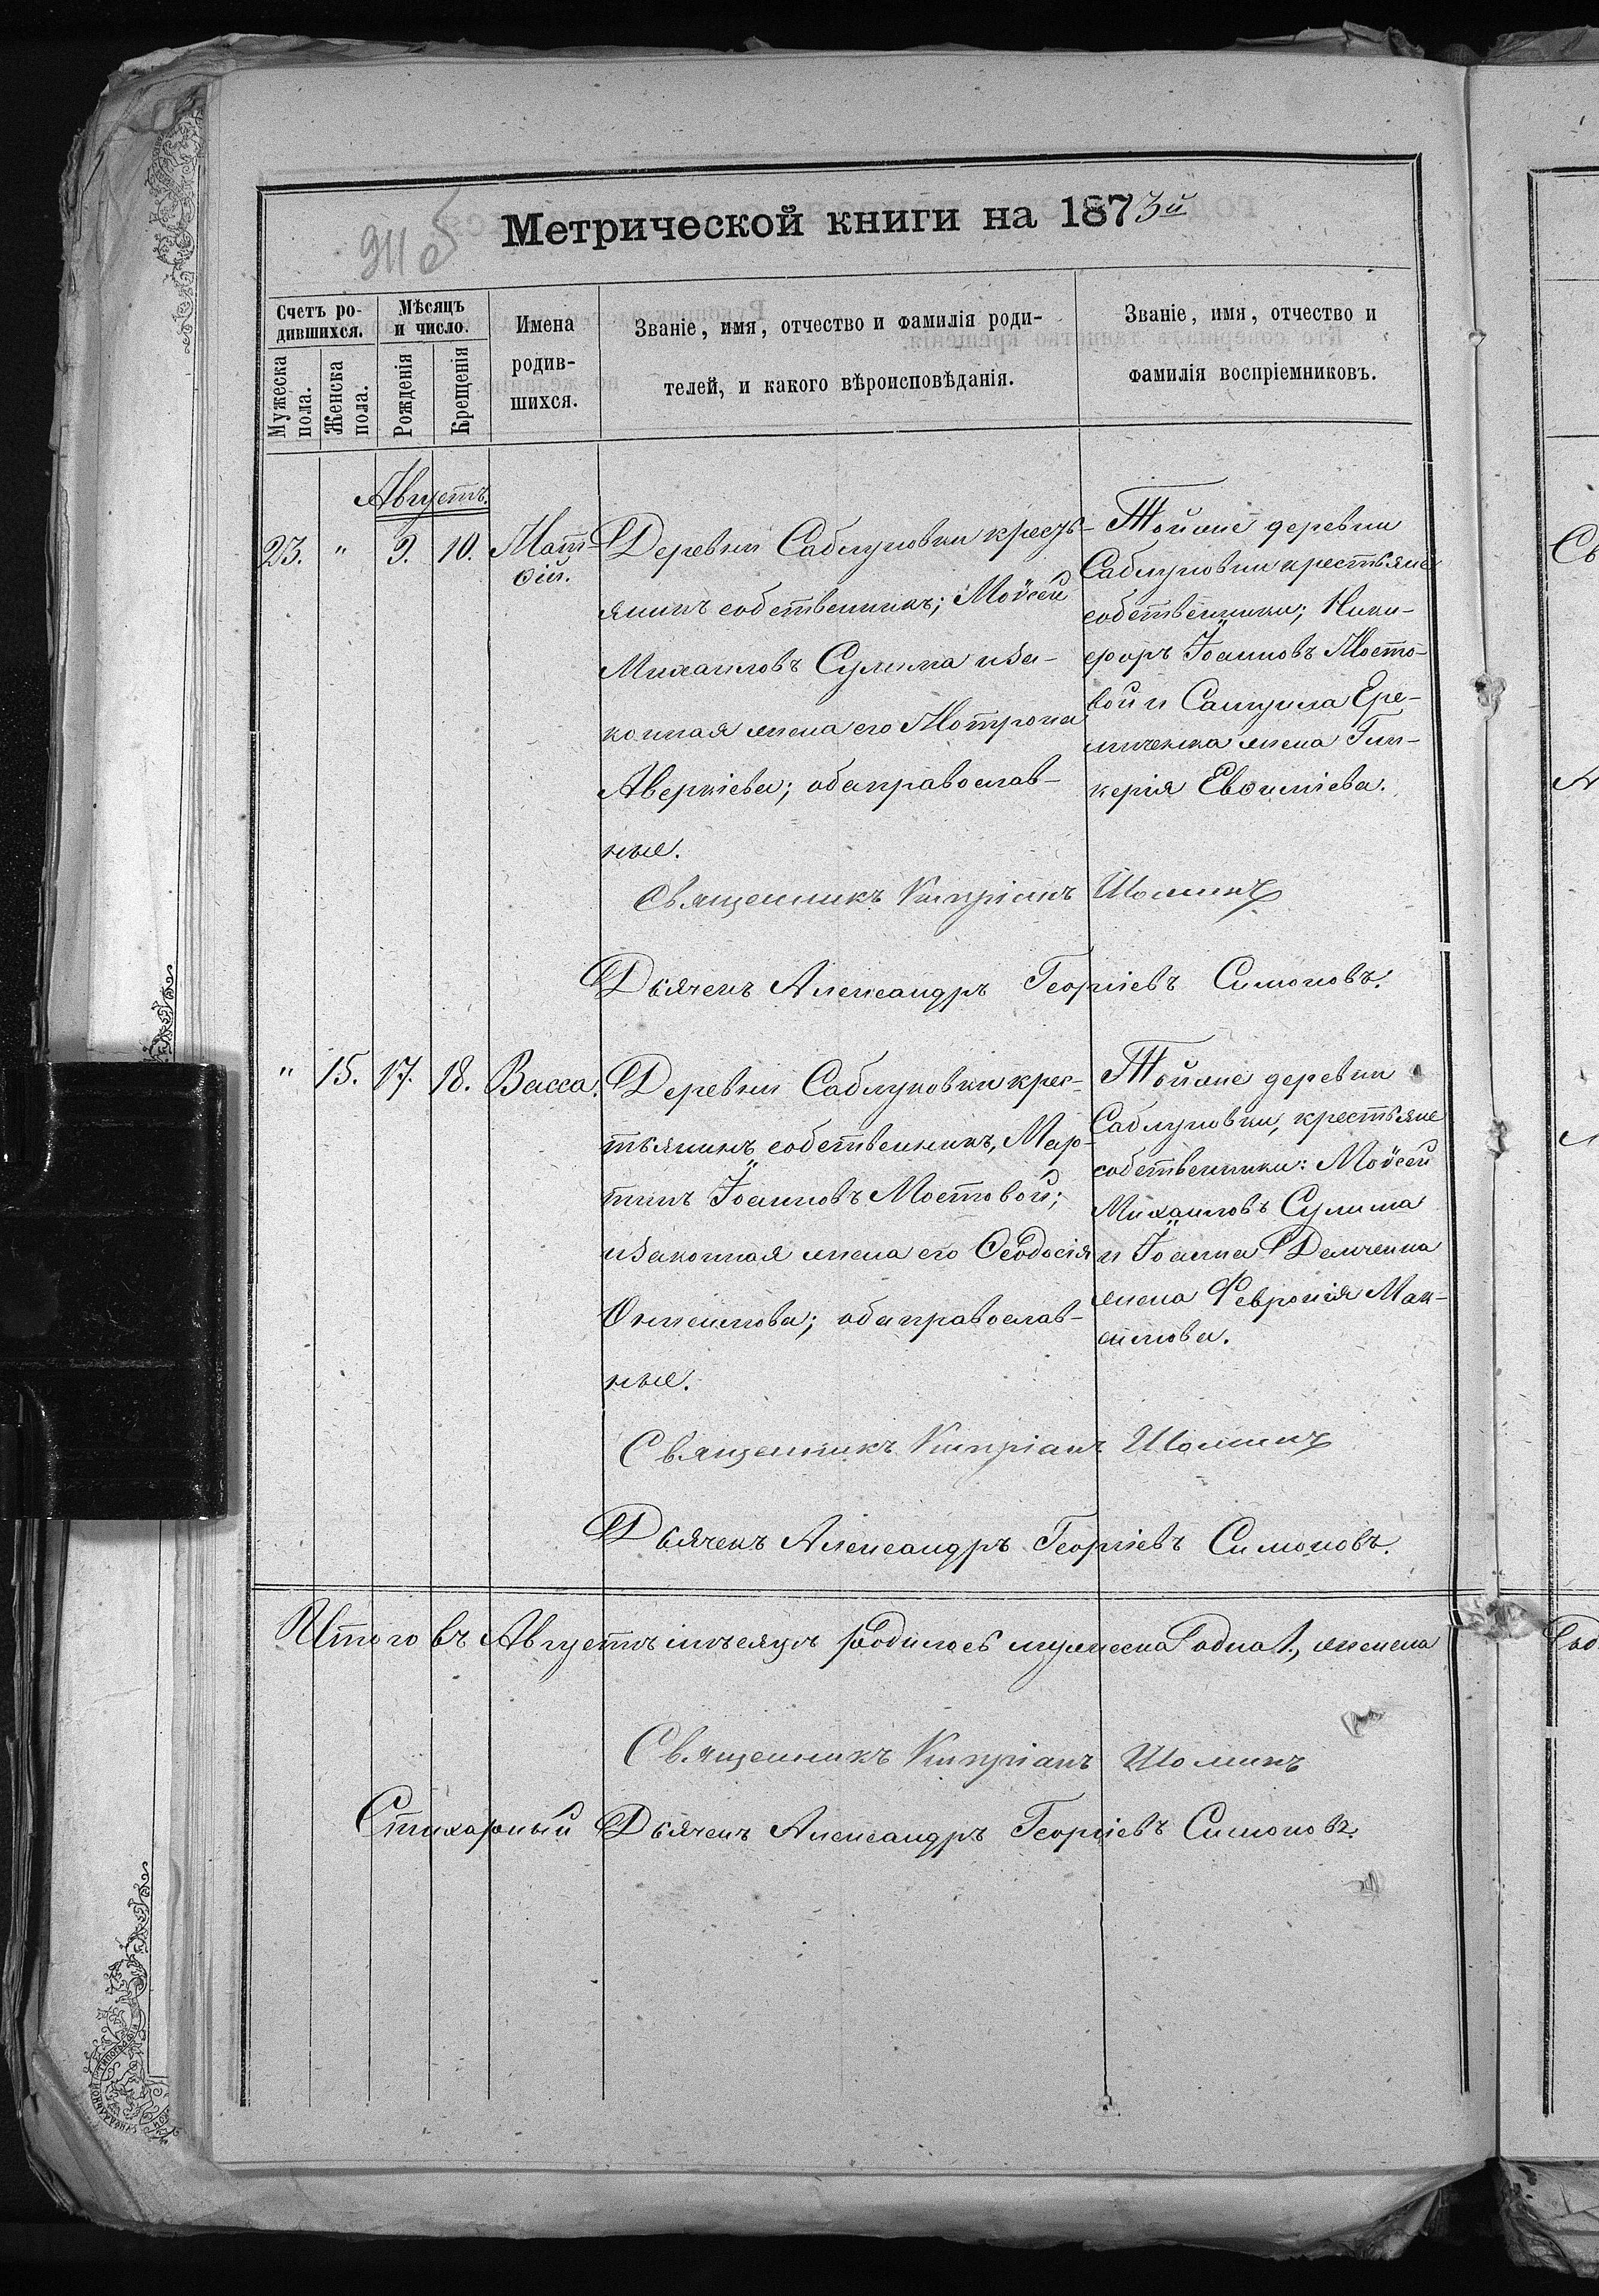 911 б
Метрической книги на 1873й
Счетъ ро-
дившихся.
Мужеска
пола.
Женска
пола.
Мѣсяцъ
и число.
Рожденія
Крещенія
Имена
родив-
шихся.
Званіе, имя, отчество и фамилія роди-
телей, и какого вѣроисповѣданія.
Званіе, имя, отчество и
фамилія воспріемниковъ.
Августъ.
23. " 9. 10. Мат-
ѳій.
Деревни Саблуковки кресть-
янинъ собственникъ; Моѵсей
Михаиловъ Сулима и за-
конная жена его Мотрона
Аверкіева; оба православ-
ные.
Тойже деревни
Саблуковки крестьяне
собственники; Ники-
форъ Іоанновъ Мосто-
вой и Самуила Ере-
мченка жена Гли-
керія Евѳиміева.
Священникъ Кипріанъ Шоминъ
Дьячекъ Александръ Георгіевъ Симоновъ.
" 15. 17. 18. Васса.
Деревни Саблуковки крес-
тьянинъ собственникъ, Мар-
тинъ Іоанновъ Мостовой;
и законная жена его Ѳеодосія
Онисимова; оба православ-
ные.
Тойже деревни
Саблуковки, крестьяне
собственники: Моѵсей
Михаиловъ Сулима
и Іоанна Демченка
жена Феуронія Мак-
симова.
Священникъ Кипріанъ Шоминъ
Дьячекъ Александръ Георгіевъ Симоновъ.
Итого въ Августѣ мѣсяцѣ родилось мужеска одна 1., женска
Священникъ Кипріанъ Шоминъ
Стихарный Дьячекъ Александръ Георгіевъ Симоновъ.